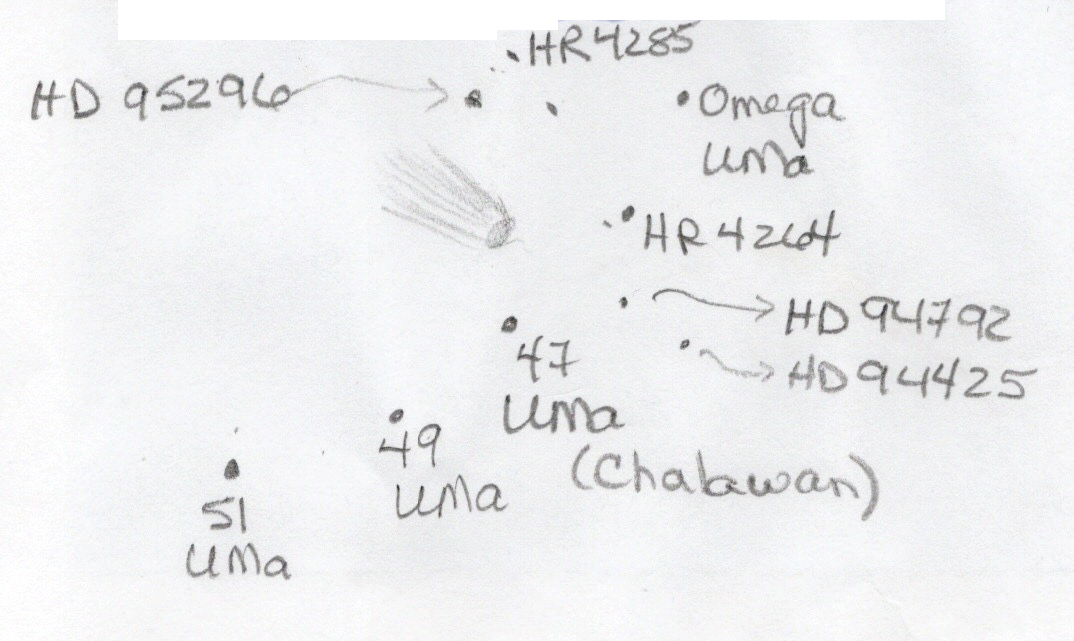 HR 4285
HD 95296
Omega
UMa
HR 4264
HD 94792
47
UMa
(Chalawan)
HD 94425
49
UMa
51
UMa